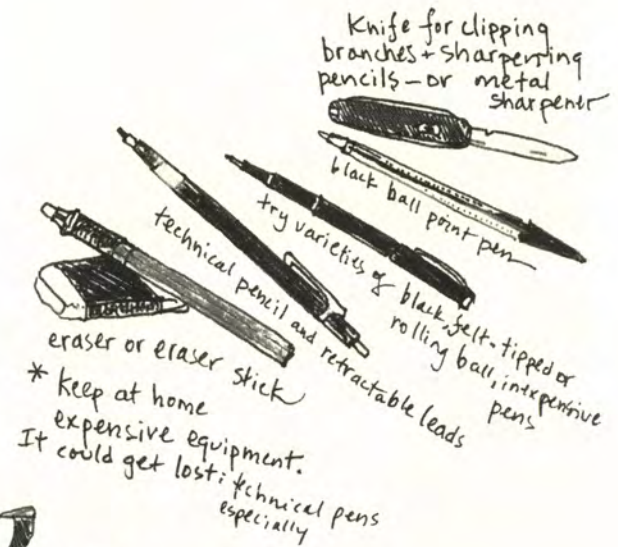 Knife for clipping
branches + sharpening
pencils - or metal
sharpener
black ball point pen
try varieties of black, felt-tipped or
rolling ball, inexpensive
pens
technical pencil and retractable leads
eraser or eraser stick
* Keep at home
expensive equipment.
It could get lost; technical pens
especially